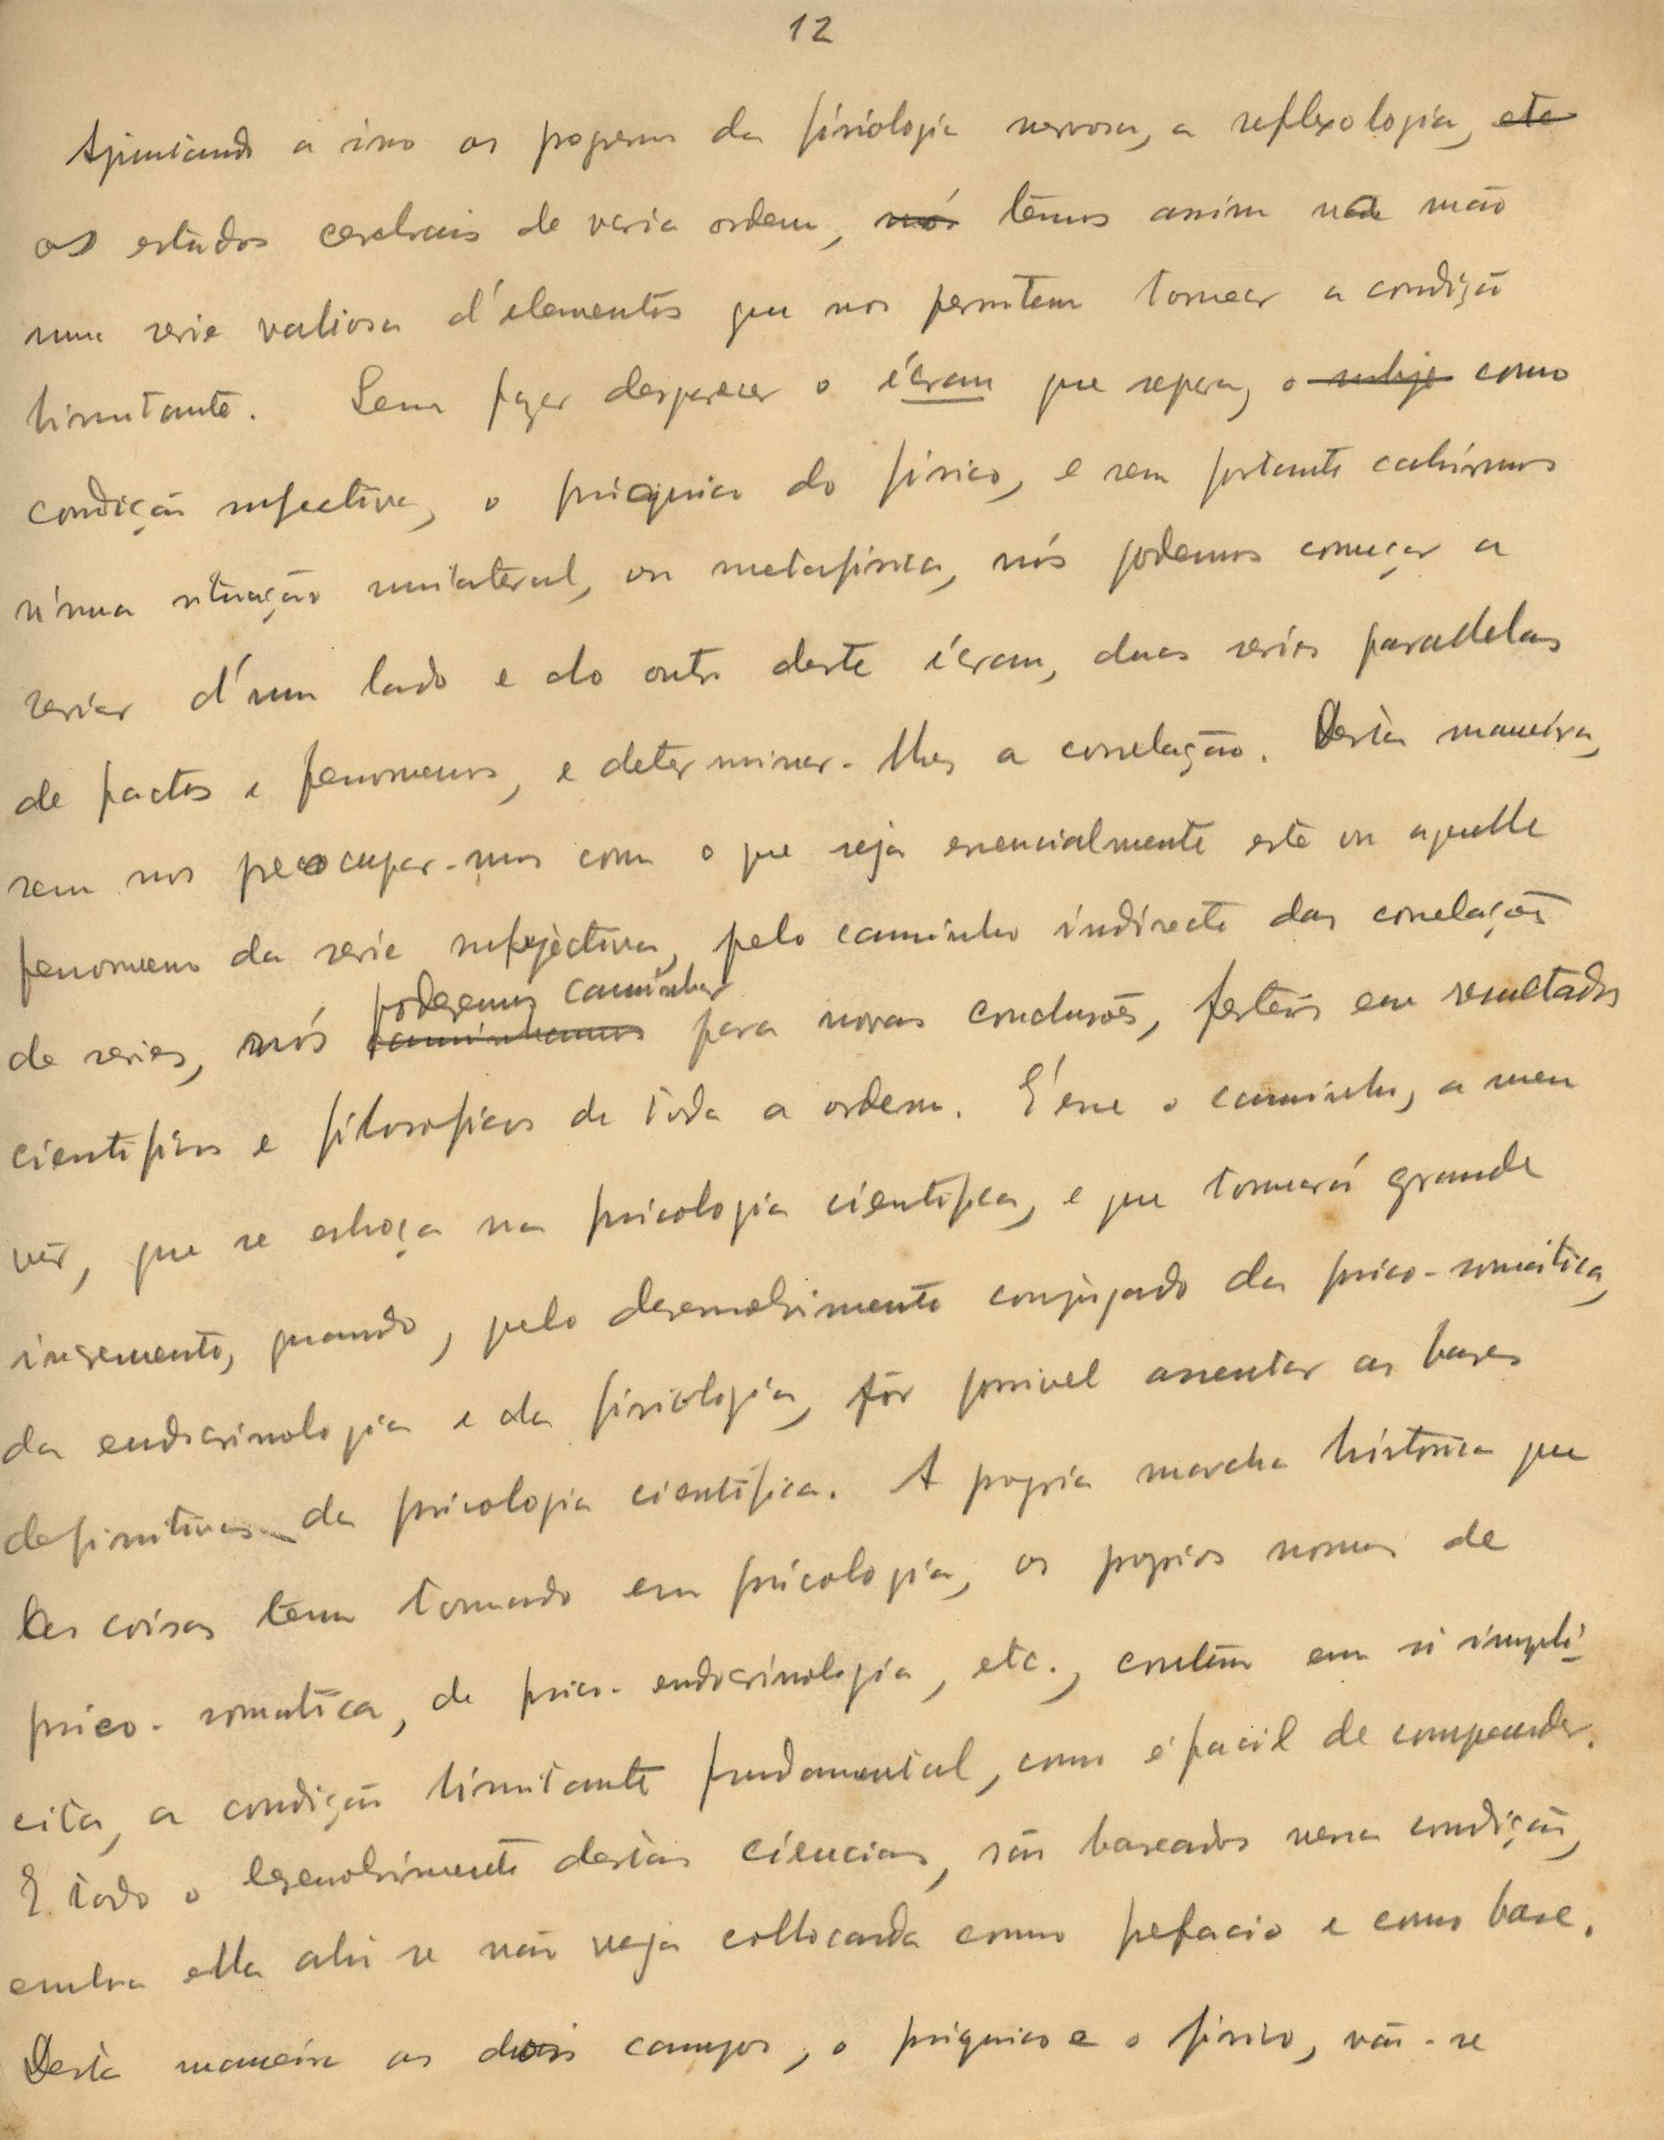 12
Ajuntando a isso os progressos da fisiologia nervosa, a reflexologia, etc
os estudos cerebrais de varia ordem, nós têmos assim na mão
uma serie valiosa d'elementos que nos permitem tornear a condição
limitante. Sem fazer desparecer o écran que separa, o subje como
condição subjectiva, o psiquico do fisico, e sem portanto cahirmos
n'uma situação unilateral, ou metafisica, nós podemos começar a
seriar d'um lado e do outro deste écran, duas series paradelas
de factos e fenomenos, e determinar-lhes a correlação. Desta maneira,
sem nos preocupar-mos com o que seja essencialmente este ou aquelle
fenomeno da serie subjectiva, pelo caminho indirecto das correlações
de series, nós podêmos caminhar caminhamos para novas conclusões, ferteis em resultados
cientificos e filosoficos de toda a ordem. E'esse o caminho, a meu
vêr, que se esboça na psicologia cientifica, e que tomará grande
incremento, quando, pelo desenvolvimento conjugado da psico-somática,
da endocrinologia e da fisiologia, fôr possivel assentar as bases
definitivas da psicologia cientifica. A propria marcha historica que
as coisas têem tomado em psicologia, os proprios nomes de
psico-somatica, de psico-endocrinologia, etc., contêm em si impli-
cita, a condição limitante fundamental, como é facil de compreender.
E todo o desenvolvimento destas ciencias, são baseados nessa condição,
embora ella ahi se não veja collocada como prefacio e como base.
Desta maneira os dois campos, o psiquico e o fisico, vão-se